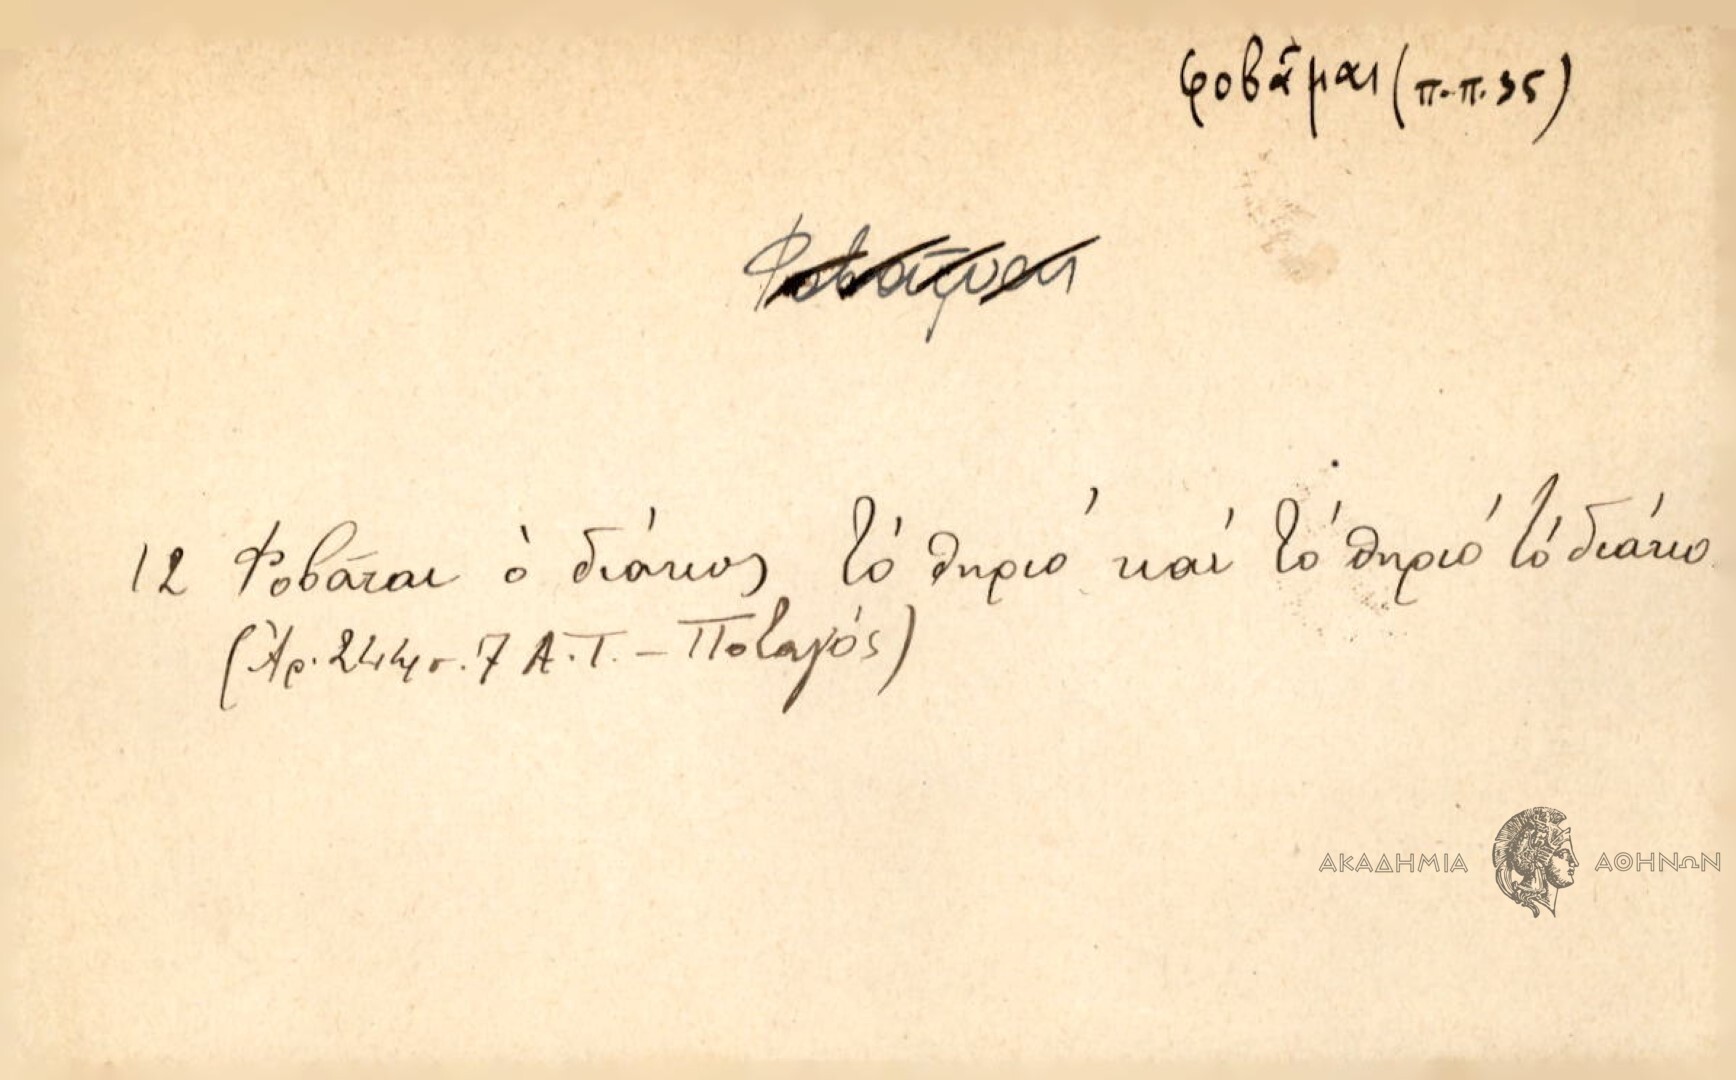 φοβᾶμαι (π.π. 35)
Φοβᾶμαι
12 Φοβᾶται ὁ διάκος τό θηριό καί τό θηριό τό διάκο
(Ἀρ. 244 σ. 7 Α.Τ. – Ποταμός)
ΑΚΑΔΗΜΙΑ ΑΘΗΝΩΝ